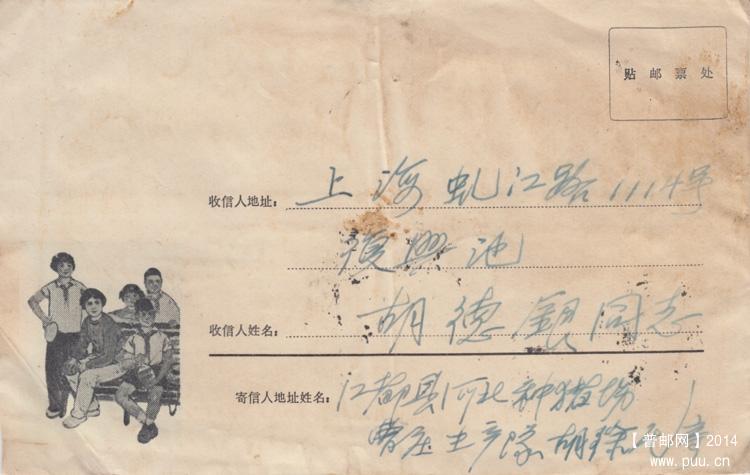 贴邮票处
收信人地址: 上海虬江路1114号
復興池
收信人姓名: 胡德银同志
寄信人地址姓名: 江都县河北种猪场
曹庄生产队胡
【普邮网】2014
www.puu.cn